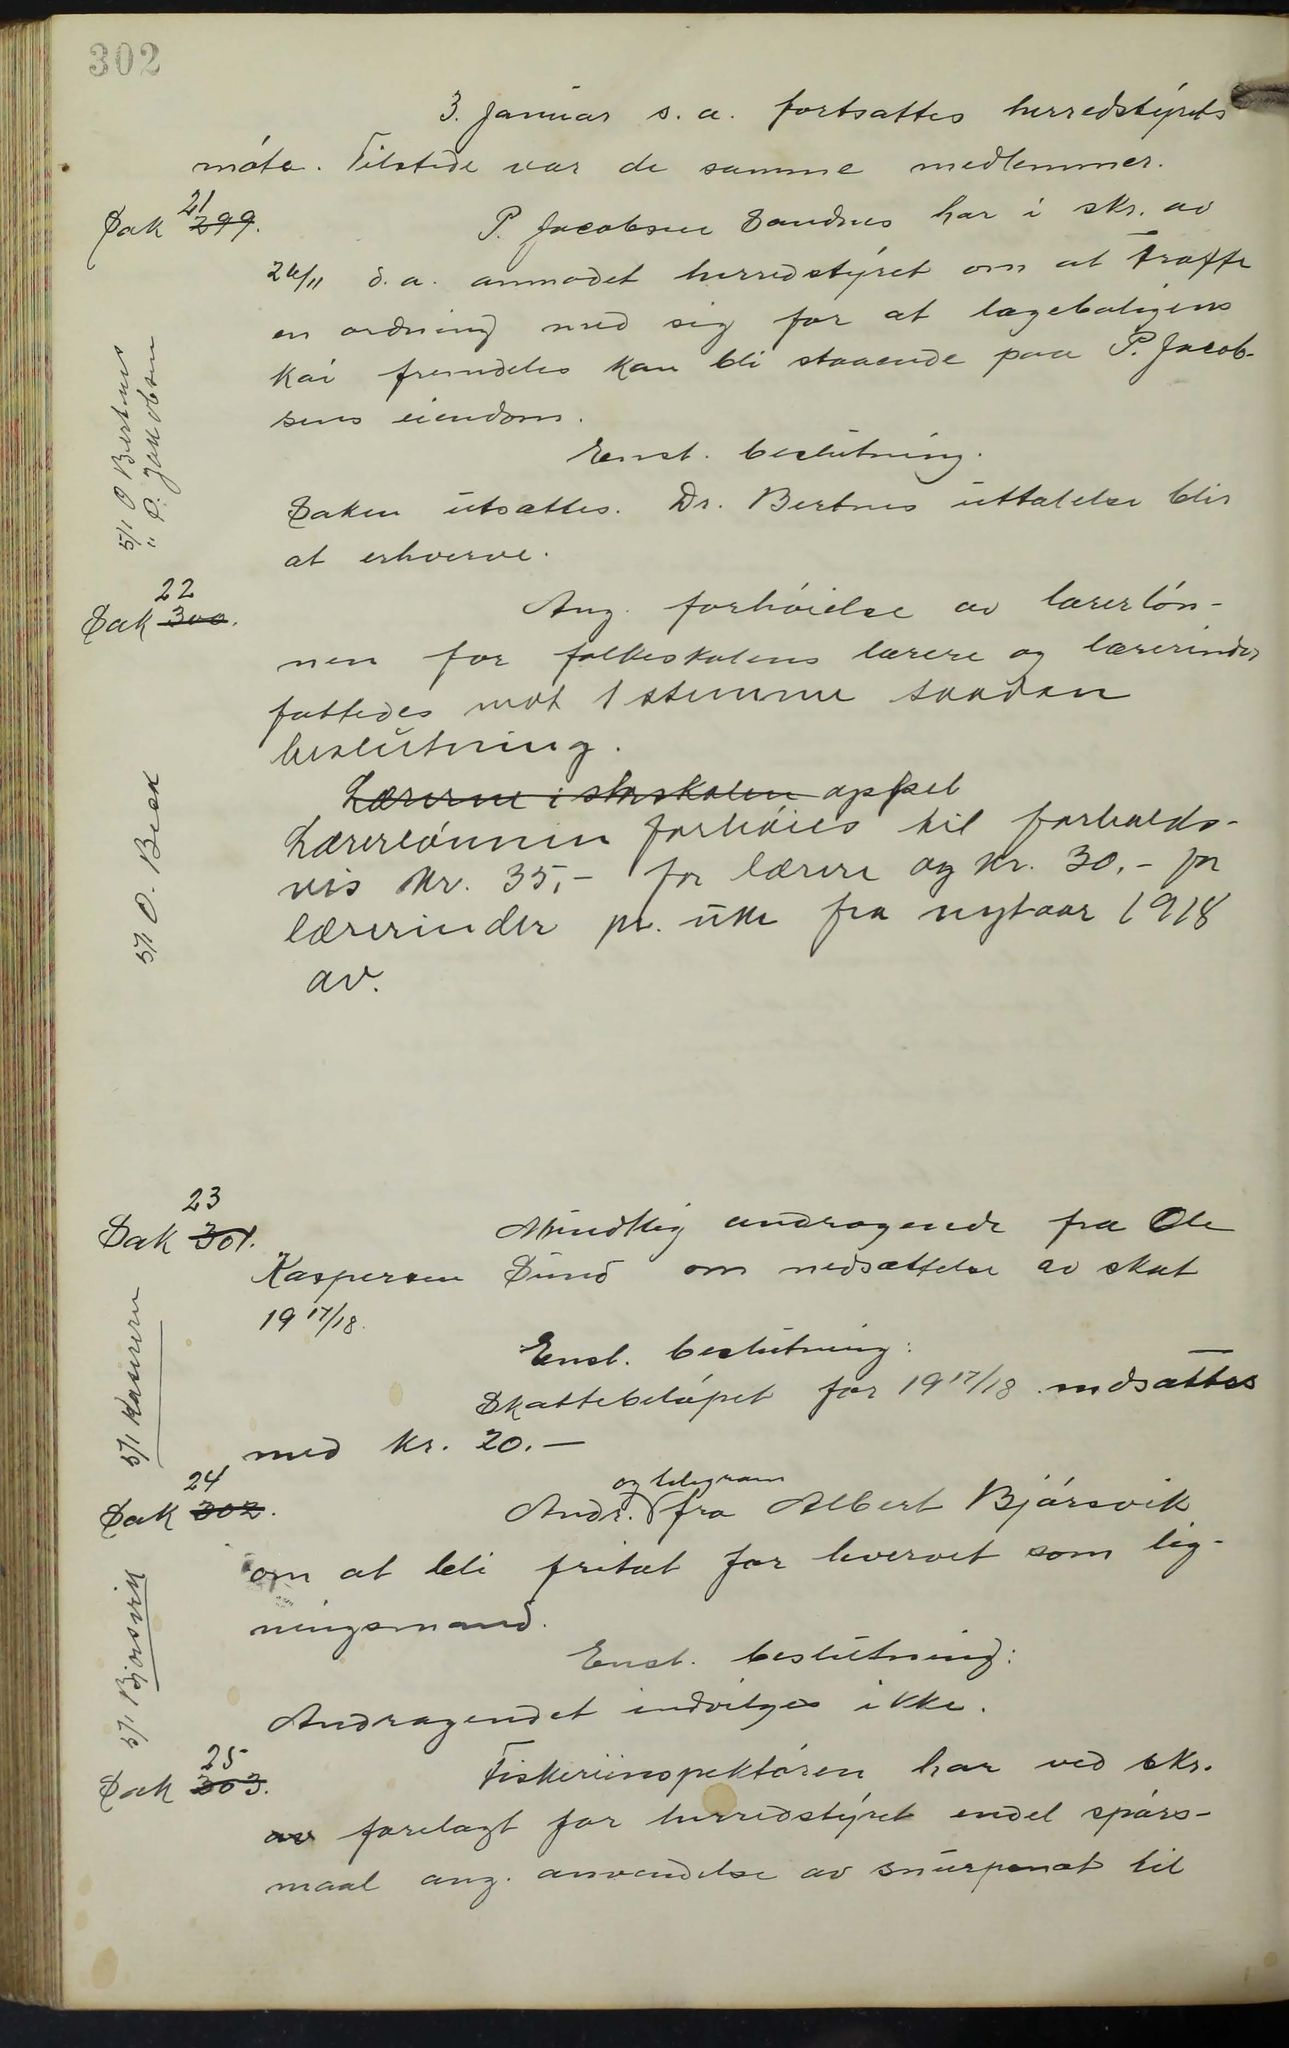 302
3. Januar s. a. fortsattes herredstyrets
møte. Tilstede var de samme medlemmer.
Sak 21 299.
P. Jacobsen Sandnes har i skr. av
26/11 d. a. anmodet herredstyret om at træffe
en ordning med sig for at lægeboligens
kai fremdeles kan bli staaende paa P. Jacob-
sens eiendom.
5/1 O Bertnes
" P. Jakobsen
Enst. beslutning.
Saken utsættes. Dr. Bertnes uttalelse blir
at erhverve.
Sak 22 300.
Ang. forhøielse av lærerløn-
nen for folkeskolens lærere og lærerinder
fattedes mot 1 stemme saadan
beslutning.
Lærerne i storskolen
Lærerlønnen forhøies til forholds-
vis kr. 35,- for lærere og kr. 30,- for
lærerinder pr. uke fra nytaar 1918
av.
5/1 O. Besk
Sak 23 301.
Mundtlig andragende fra Ole
Kaspersen Sund om nedsættelse av skat
19 17/18.
Enst. beslutning:
Skattebeløpet for 19 17/18 nedsættes
med kr. 20.-
5/1 Kasserern
Sak 24 302.
Andr. og telegram fra Albert Bjørsvik
om at bli fritat for hvervet som lig-
ningsmand.
Enst. beslutning:
Andragendet indvilges ikke.
5/1 Bjørsvik
Sak 25 303.
Fiskeriinspektøren har ved skr.
av forelagt for herredstyret endel spørs-
maal ang. anvendelse av snurpenot til